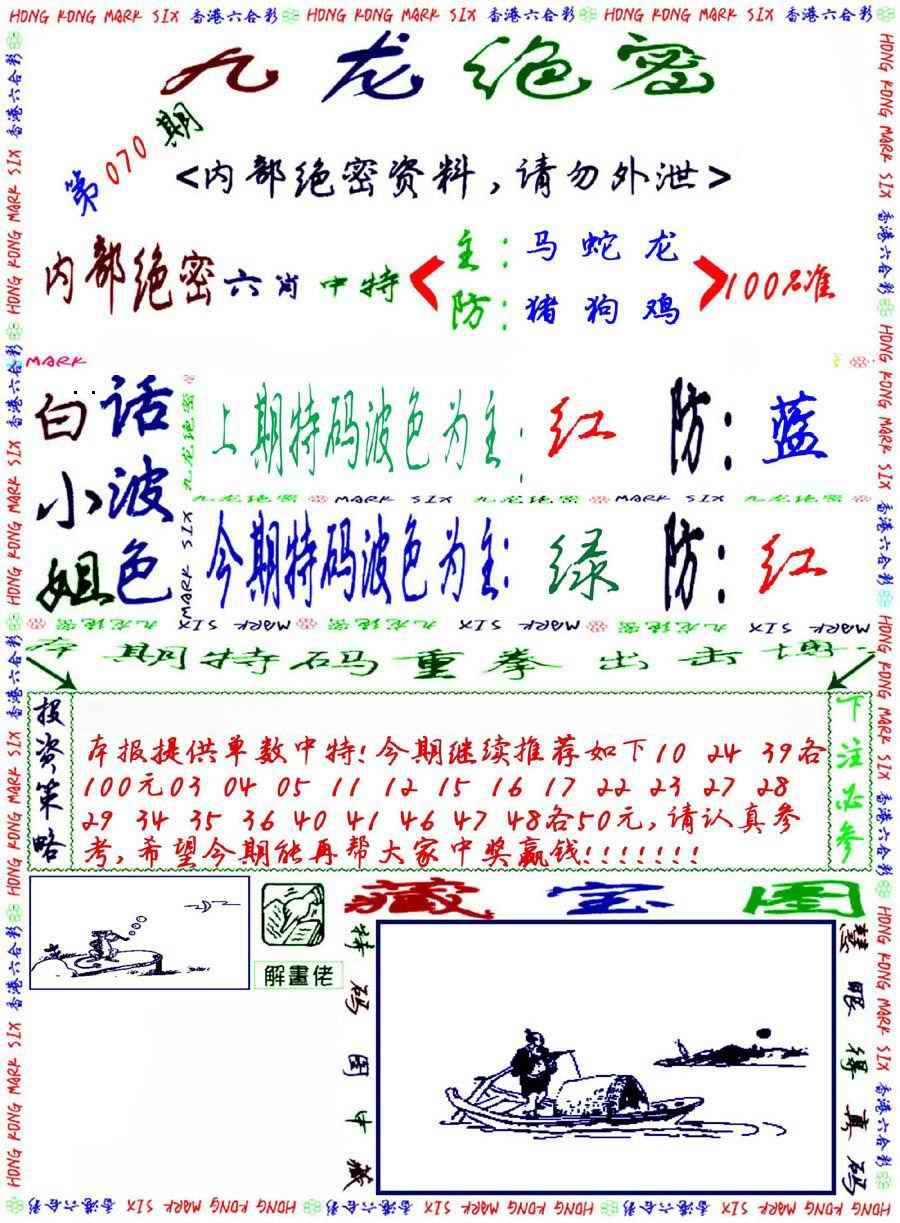 HONG KONG MARK SIX 香港六合彩 HONG KONG MARK SIX 香港六合彩 HONG KONG MARK SIX 香港六合彩
九龙绝密
第070期
<内部绝密资料,请勿外泄>
内部绝密六肖中特
主:马蛇龙
防:猪狗鸡
100%准
MARK
白话小波姐色
上期特码波色为主:红 防:蓝
九龙绝密 MARK SIX 九龙绝密 MARK SIX 九龙绝密
今期特码波色为主:绿 防:红
MARK SIX 九龙绝密 MARK SIX 九龙绝密 MARK SIX
本期特码重拳出击博
投资策略
本报提供单数中特!今期继续推荐如下10 24 39各
100元03 04 05 11 12 15 16 17 22 23 27 28
29 34 35 36 40 41 46 47 48各50元,请认真参
考,希望今期能再帮大家中奖赢钱!!!!!!!
下注必参
解畫佬
藏宝图
特码图中藏
慧眼得真码
HONG KONG MARK SIX 香港六合彩 HONG KONG MARK SIX 香港六合彩 HONG KONG MARK SIX 香港六合彩